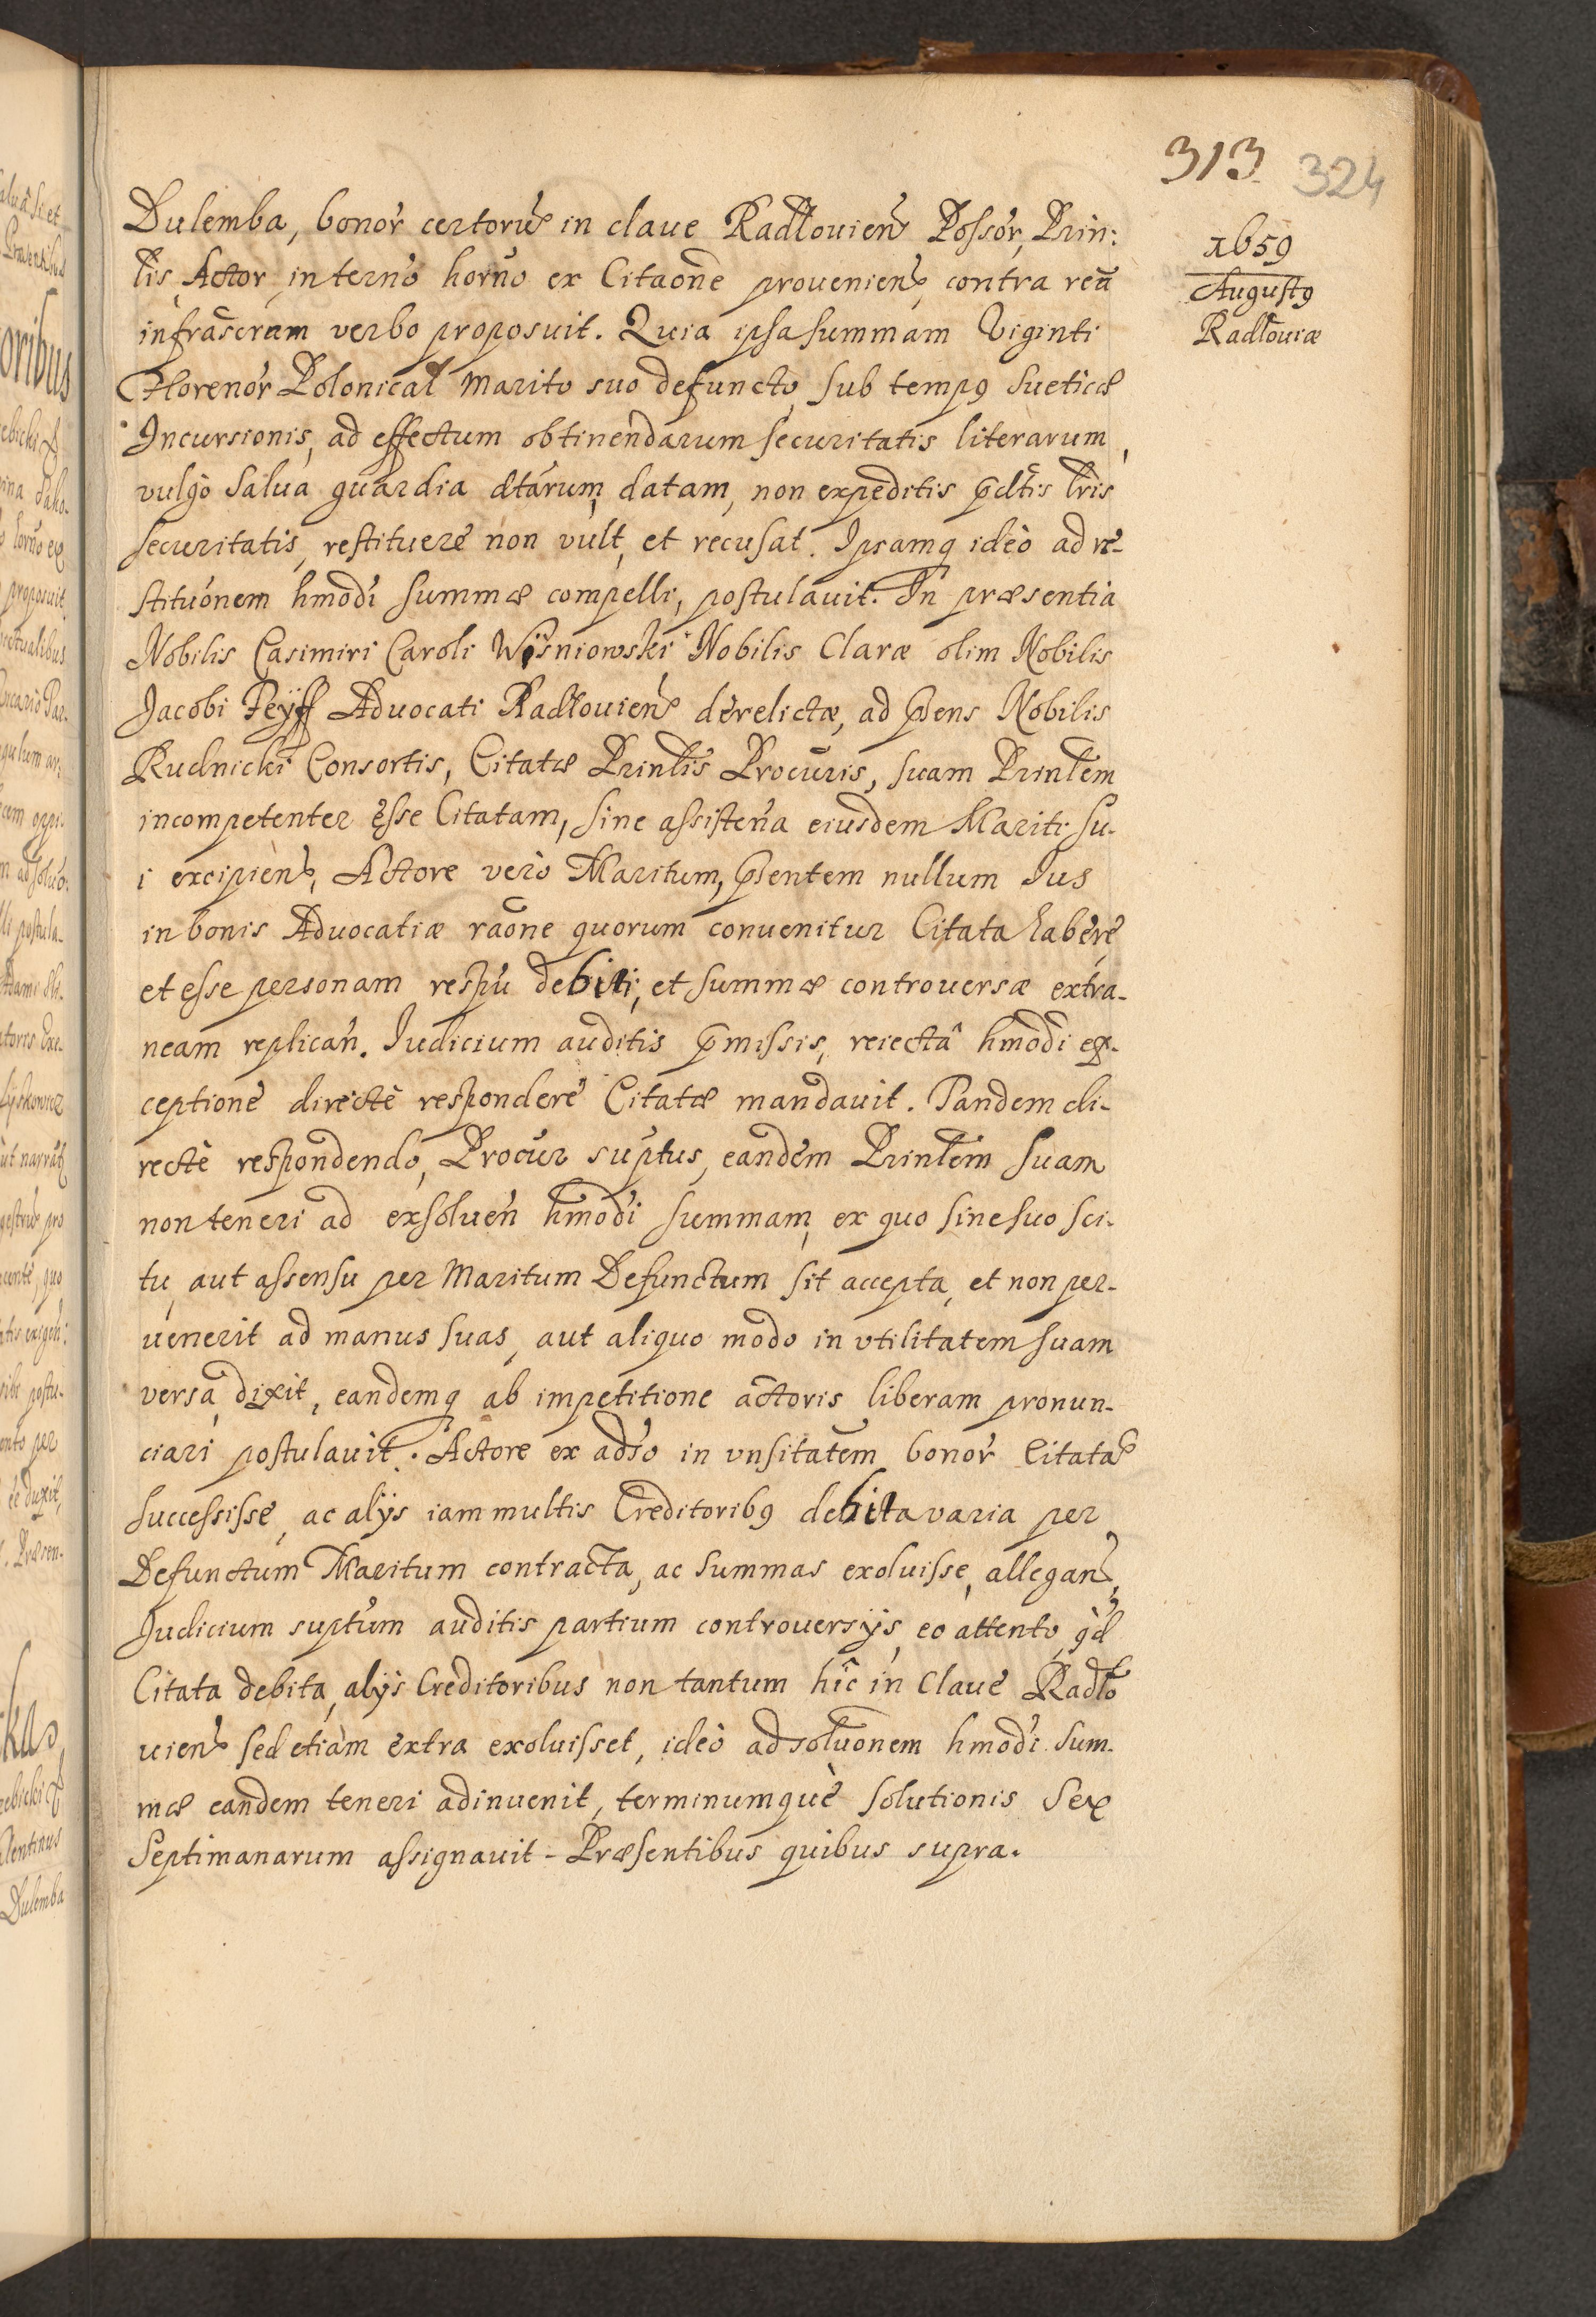 313 324
1659
Augustꝰ
Radłouiæ
Dulemba, bonor̃ certorũ in claue Radłouien̄ Possor, Prin:
lis Actor, in termõ horño ex Citaõne prouenien̄, contra reũ
infrãscram verbo proposuit. Quia ipsa summam Viginti
Florenor̃ Polonical Marito suo defuncto, sub tempꝰ Sueticæ
Incursionis, ad effectum obtinendarum securitatis literarum,
vulgò Salua guardia dtarum, datam, non expeditis p̃dtis lr̃is
securitatis, restituere non vult, et recusat. Ipsamq ideò ad re-
stituõnem hmõdi summæ compelli, postulauit. In præsentia
Nobilis Casimiri Caroli Wisniowski Nobilis Claræ olim Nobilis
Jacobi Feÿff Aduocati Radłouien̄ derelictæ, ad p̃sens Nobilis
Rudnicki Consortis, Citatæ Prinlis Procuris, suam Prinlem
incompetenter esse Citatam, sine assisteña eiusdem Mariti su-
i excipien̄, Actore verò Maritum, p̃sentem nullum Jus
in bonis Aduocatiæ raõne quorum conuenitur Citata habere,
et esse personam respũ debiti, et summæ controuersæ extra-
neam replicañ. Iudicium auditis p̃missis, reiectâ hmõdi ex-
ceptione directè respondere Citatæ mandauit. Tandem di-
rectè respondendo, Procur suptus, eandem Prinlem suam
non teneri ad exsoluen̄ hmõdi summam, ex quo sine suo sci-
tu, aut assensu per Maritum Defunctum sit accepta, et non per-
uenerit ad manus suas, aut aliquo modo in vtilitatem suam
versa, dixit, eandemq ab impetitione actoris liberam pronun-
ciari postulauit. Actore ex adso in vnsitatem bonor̃ Citatã
successisse, ac alÿs iam multis Creditoribꝰ debita varia per
Defunctum Maritum contracta, ac summas exoluisse, allegan̄,
Judicium suptum auditis partium controuersÿs, eo attento, qd
Citata debita, alÿs Creditoribus non tantum hîc in Claue Radło
uien̄ sed etiàm extra exoluisset, ideò ad soluõnem hmõdi sum-
mæ eandem teneri adinuenit, terminumquè solutionis Sex
Septimanarum assignauit - Præsentibus quibus supra.